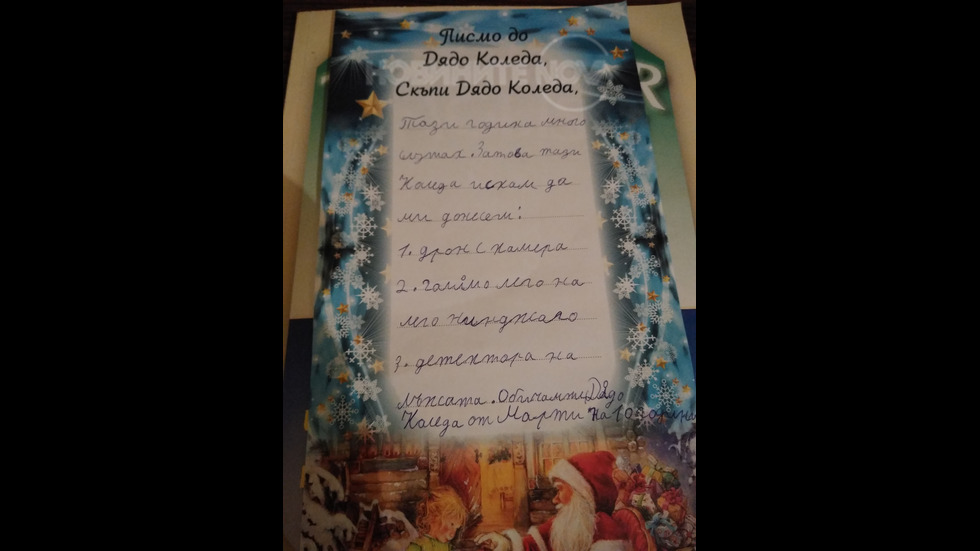 Писмо до
Дядо Коледа,
Скъпи Дядо Коледа,
Тази година много
слушах. Затова тази
Коледа искам да
ми донесеш:
1. дрон с камера
2. голямо лего на
лего нинджаго
3. детектора на
лъжата. Обичам те Дядо
Коледа от Марти на 10 години